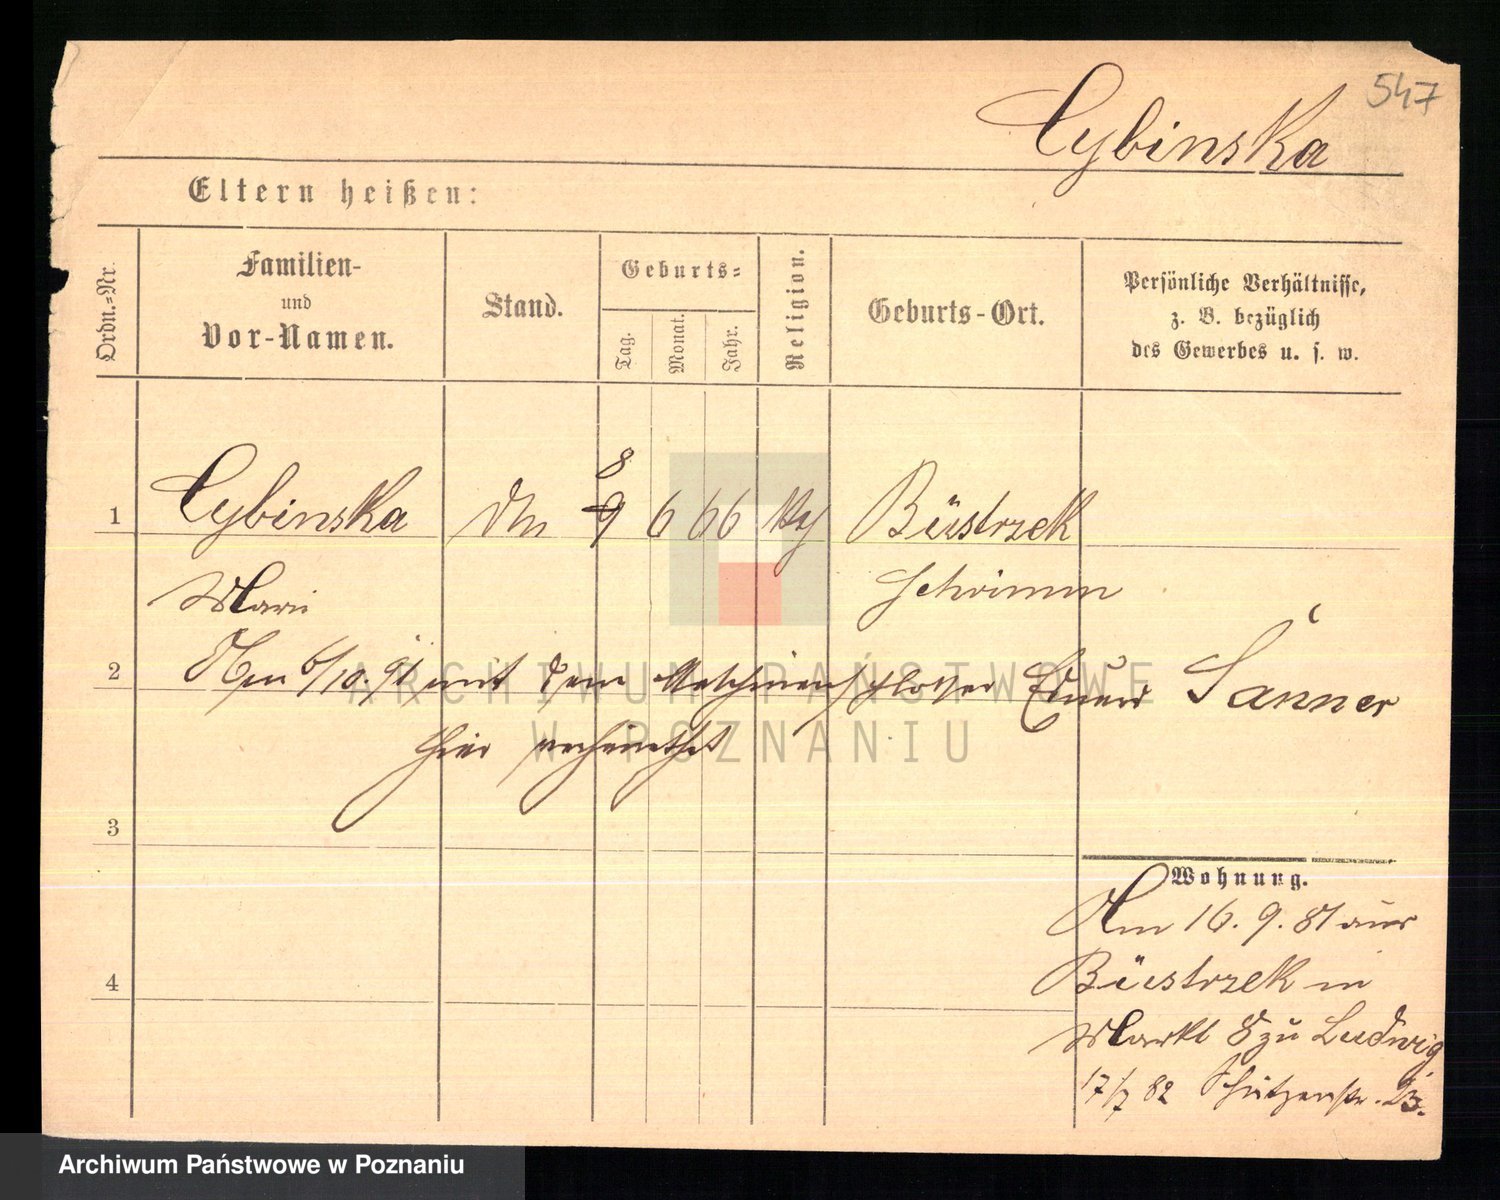 547
Cybinska
Eltern heißen:
Ordn.-Nr.
Familien-
und
Vor-Namen.
Stand.
Geburts-
Tag.
Monat.
Jahr.
Religion.
Geburts-Ort.
Persönliche Verhältnisse,
z. B. bezüglich
des Gewerbes u. s. w.
8
1 Cybinska 9 6 66 Büstrzek
Marie Schrimm
2 Am 6/10. 91 mit dem Maschinenschlosser Eduard Sänner
hier verheirathet
3
Wohnung.
Am 16. 9. 81 aus
Büstrzek in
4
Markt 8 zu Ludwig
17/7 82 Schützenstr. 23.
ARCHIWUM PAŃSTWOWE
W POZNANIU
Archiwum Państwowe w Poznaniu